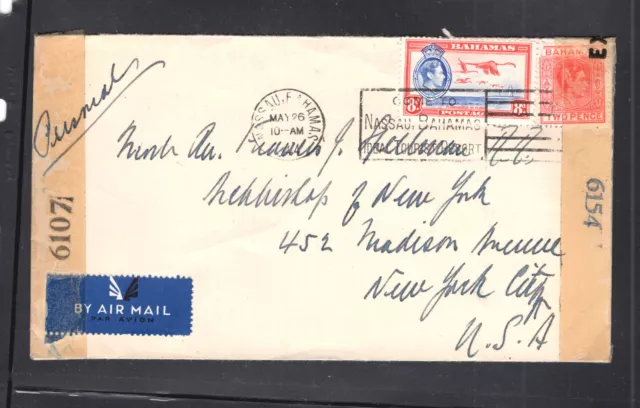 Personal
BAHAMAS
8d 8d
POSTAGE
BAHAM
TWO PENCE
EX
NASSAU·BAHAMAS
MAY 26
10-AM
COME TO
NASSAU, BAHAMAS
IDEAL TOURIST RESORT
Most Rev. Francis J.
Archbishop of New York
452 Madison Avenue
New York City
U.S.A
6107
6154
BY AIR MAIL
PAR AVION